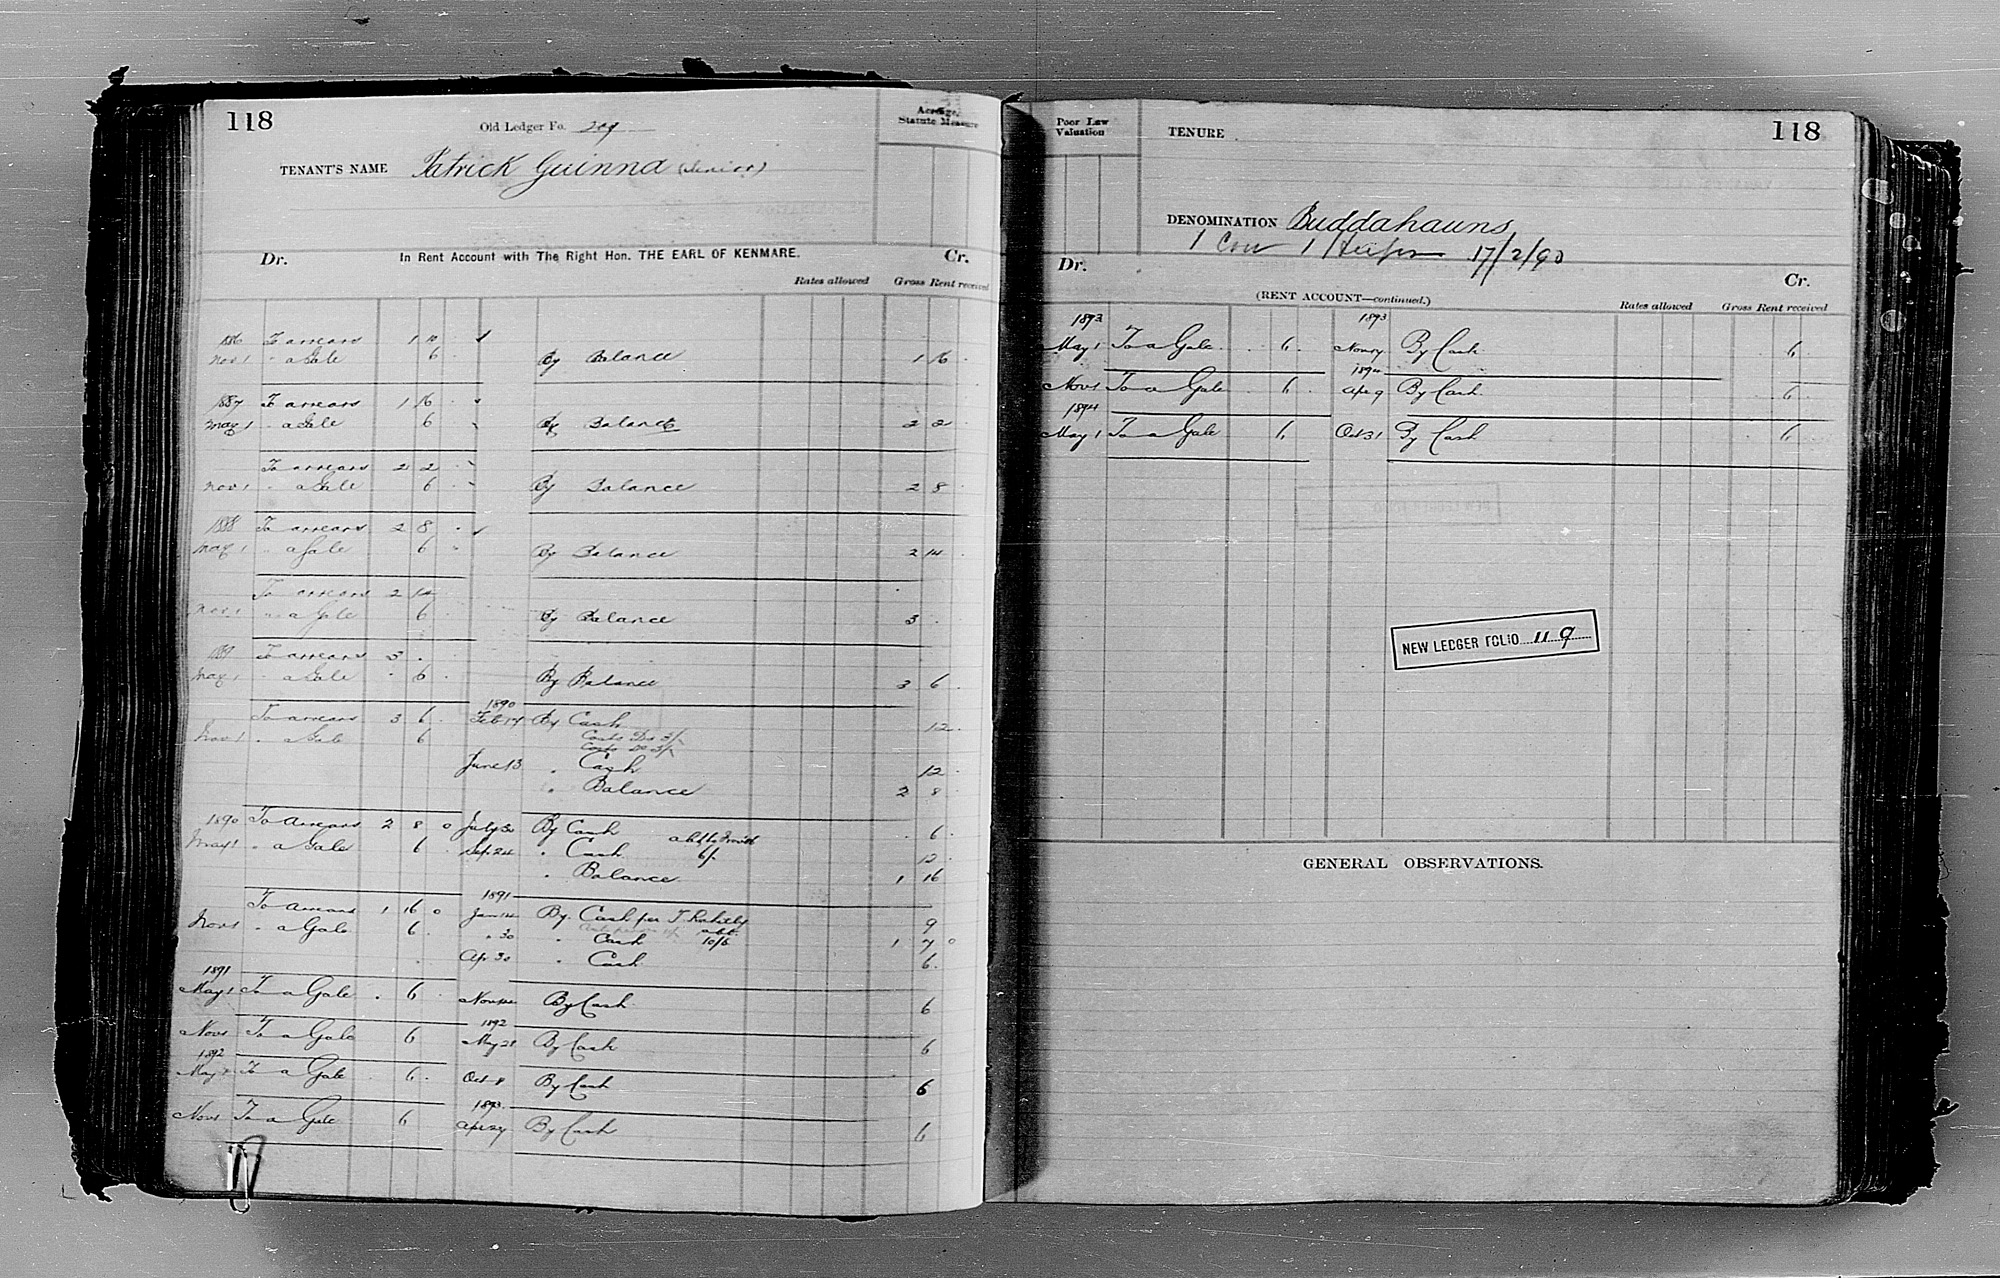 118
Old Ledger Fo. 209
Acreage, Statute Measure
TENANT'S NAME Patrick Guinna (Senior)
Dr. In Rent Account with The Right Hon. THE EARL OF KENMARE. Cr.
Rates allowed Gross Rent received
1886 To arrears 1 10
Nov 1 " a Gale 6 By Balance 1 16
1887 To arrears 1 16
May 1 " a Gale 6 By Balance 2 2
To arrears 2 2
Nov 1 " a Gale 6 By Balance 2 8
1888 To arrears 2 8
May 1 " a Gale 6 By Balance 2 14
To arrears 2 14
Nov 1 " a Gale 6 By Balance 3
1889 To arrears 3
May 1 " a Gale 6 By Balance 3 6
1890
To arrears 3 6 Feb 17 By Cash 12
Nov 1 " a Gale 6 Costs Do 3/
Costs Do 3/
June 13 " Cash 12
" Balance 2 8
1890 To Arrears 2 8 0 July 30 By Cash 6
May 1 " a Gale 6 Sep. 24 " Cash 6/. 12
" Balance 1 16
1891
To Arrears 1 16 0 Jan 14 By Cash per T. Rahilly 9
Nov 1 " a Gale 6 " 30 " Cash 10/6 1 7 0
Ap 30 " Cash 6
1891
May 1 To a Gale 6 Nov By Cash 6
1892
Nov 1 To a Gale 6 May 28 By Cash 6
1892
May 1 To a Gale 6 Oct 8 By Cash 6
1893
Nov 1 To a Gale 6 Apl 27 By Cash 6
118
Poor Law Valuation
TENURE
DENOMINATION Buddahauns
1 Cow 1 Heifer 17/2/90
Dr. Cr.
(RENT ACCOUNT—continued.)
Rates allowed Gross Rent received
1893 1893
May 1 To a Gale 6 By Cash 6
1894
Nov 1 To a Gale 6 Apl 9 By Cash 6
1894
May 1 To a Gale 6 Oct 31 By Cash 6
NEW LEDGER FOLIO 119
GENERAL OBSERVATIONS.